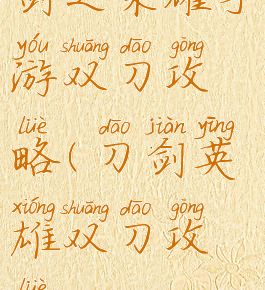 剑之荣耀手
yóu shuāng dāo gōng
游双刀攻
lüè dāo jiàn yīng
略(刀剑英
xióng shuāng dāo gōng
雄双刀攻
lüè